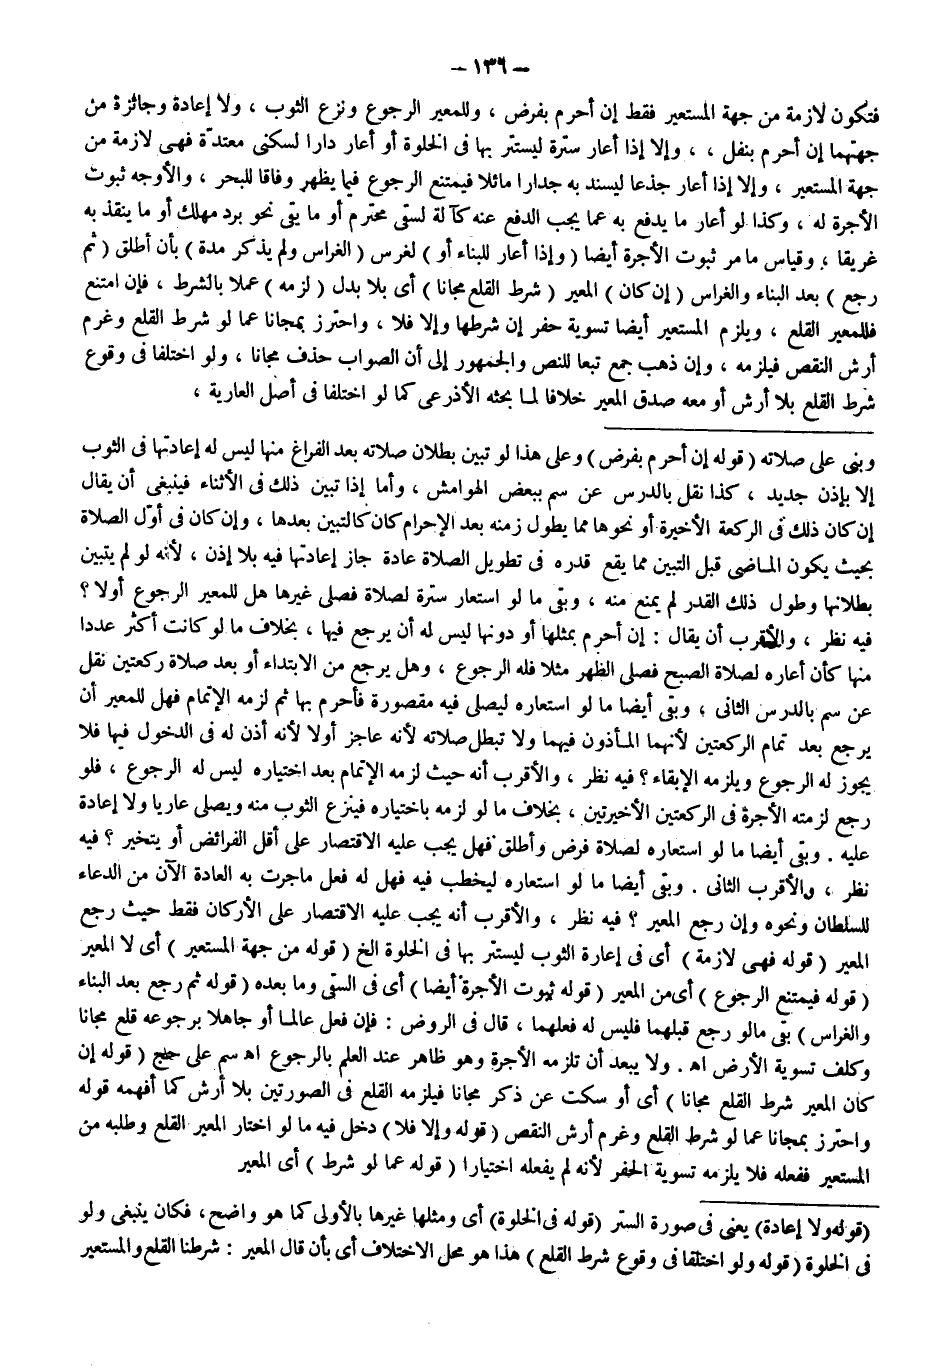 – ١٣٦ –
فتكون لازمة من جهة المستعير فقط إن أحرم بفرض ، وللمعير الرجوع ونزع الثوب ، ولا إعادة وجائزة من
جهتهما إن أحرم بنفل ، ، وإلا إذا أعار سترة ليستتر بها فى الخلوة أو أعار دارا لسكنى معتدّة فهى لازمة من
جهة المستعير ، وإلا إذا أعار جذعا ليسند به جدارا مائلا فيمتنع الرجوع فيما يظهر وفاقا للبحر ، والأوجه ثبوت
الأجرة له ، وكذا لو أعار ما يدفع به عما يجب الدفع عنه كآلة لسقى محترم أو ما يقى نحو برد مهلك أو ما ينقذ به
غريقا ، وقياس ما مر ثبوت الأجرة أيضا ( وإذا أعار للبناء أو ) لغرس ( الغراس ولم يذكر مدة ) بأن أطلق ( ثم
رجع ) بعد البناء والغراس ( إن كان ) المعير ( شرط القلع مجانا ) أى بلا بدل ( لزمه ) عملا بالشرط ، فإن امتنع
فللمعير القلع ، ويلزم المستعير أيضا تسوية حفر إن شرطها وإلا فلا ، واحترز بمجانا عما لو شرط القلع وغرم
أرش النقص فيلزمه ، وإن ذهب جمع تبعا للنص والجمهور إلى أن الصواب حذف مجانا ، ولو اختلفا فى وقوع
شرط القلع بلا أرش أو معه صدق المعير خلافا لما بحثه الأذرعى كما لو اختلفا فى أصل العارية ،
وبنى على صلاته ( قوله إن أحرم بفرض ) وعلى هذا لو تبين بطلان صلاته بعد الفراغ منها ليس له إعادتها فى الثوب
إلا بإذن جديد ، كذا نقل بالدرس عن سم ببعض الهوامش ، وأما إذا تبين ذلك فى الأثناء فينبغى أن يقال
إن كان ذلك فى الركعة الأخيرة أو نحوها مما يطول زمنه بعد الإحرام كان كالتبين بعدها ، وإن كان فى أوّل الصلاة
بحيث يكون الماضى قبل التبين مما يقع قدره فى تطويل الصلاة عادة جاز إعادتها فيه بلا إذن ، لأنه لو لم يتبين
بطلانها وطول ذلك القدر لم يمنع منه ، وبقى ما لو استعار سترة لصلاة فصلى غيرها هل للمعير الرجوع أولا ؟
فيه نظر ، والأقرب أن يقال : إن أحرم بمثلها أو دونها ليس له أن يرجع فيها ، بخلاف ما لو كانت أكثر عددا
منها كأن أعاره لصلاة الصبح فصلى الظهر مثلا فله الرجوع ، وهل يرجع من الابتداء أو بعد صلاة ركعتين نقل
عن سم بالدرس الثانى ، وبقى أيضا ما لو استعاره ليصلى فيه مقصورة فأحرم بها ثم لزمه الإتمام فهل للمعير أن
يرجع بعد تمام الركعتين لأنهما المأذون فيهما ولا تبطل صلاته لأنه عاجز أولا لأنه أذن له فى الدخول فيها فلا
يجوز له الرجوع ويلزمه الإبقاء ؟ فيه نظر ، والأقرب أنه حيث لزمه الإتمام بعد اختياره ليس له الرجوع ، فلو
رجع لزمته الأجرة فى الركعتين الأخيرتين ، بخلاف ما لو لزمه باختياره فينزع الثوب منه ويصلى عاريا ولا إعادة
عليه . وبقى أيضا ما لو استعاره لصلاة فرض وأطلق فهل يجب عليه الاقتصار على أقل الفرائض أو يتخير ؟ فيه
نظر ، والأقرب الثانى . وبقى أيضا ما لو استعاره ليخطب فيه فهل له فعل ماجرت به العادة الآن من الدعاء
للسلطان ونحوه وإن رجع المعير ؟ فيه نظر ، والأقرب أنه يجب عليه الاقتصار على الأركان فقط حيث رجع
المعير ( قوله فهى لازمة ) أى فى إعارة الثوب ليستتر بها فى الخلوة الخ ( قوله من جهة المستعير ) أى لا المعير
( قوله فيمتنع الرجوع ) أى من المعير ( قوله ثبوت الأجرة أيضا ) أى فى السقى وما بعده ( قوله ثم رجع بعد البناء
والغراس ) بقى مالو رجع قبلهما فليس له فعلهما ، قال فى الروض : فإن فعل عالما أو جاهلا برجوعه قلع مجانا
وكلف تسوية الأرض اه . ولا يبعد أن تلزمه الأجرة وهو ظاهر عند العلم بالرجوع اه سم على حج ( قوله إن
كان المعير شرط القلع مجانا ) أى أو سكت عن ذكر مجانا فيلزمه القلع فى الصورتين بلا أرش كما أفهمه قوله
واحترز بمجانا عما لو شرط القلع وغرم أرش النقص ( قوله وإلا فلا ) دخل فيه ما لو اختار المعير القلع وطلبه من
المستعير ففعله فلا يلزمه تسوية الحفر لأنه لم يفعله اختيارا ( قوله عما لو شرط ) أى المعير
(قوله ولا إعادة) يعنى فى صورة الستر (قوله فى الخلوة) أى ومثلها غيرها بالأولى كما هو واضح، فكان ينبغى ولو
فى الخلوة ( قوله ولو اختلفا فى وقوع شرط القلع ) هذا هو محل الاختلاف أى بأن قال المعير : شرطنا القلع والمستعير